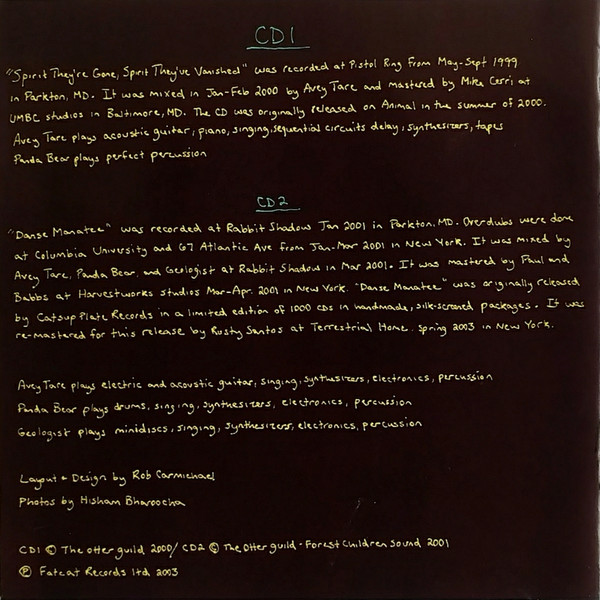 CD1
"Spirit They're Gone, Spirit They've Vanished" was recorded at Pistol Ring From May-Sept 1999
in Parkton, MD. It was mixed in Jan-Feb 2000 by Avey Tare and mastered by Mike Cerri at
UMBC studios in Baltimore, MD. The CD was originally released on Animal in the summer of 2000.
Avey Tare plays acoustic guitar, piano, singing, sequential circuits delay, synthesizers, tapes
Panda Bear plays perfect percussion
CD2
"Danse Manatee" was recorded at Rabbit Shadows Jan 2001 in Parkton, MD. Overdubs were done
at Columbia University and 67 Atlantic Ave from Jan-Mar 2001 in New York. It was mixed by
Avey Tare, Panda Bear, and Geologist at Rabbit Shadows in Mar 2001. It was mastered by Paul and
Babbs at Harvestworks studios Mar-Apr. 2001 in New York. "Danse Manatee" was originally released
by Catsup Plate Records in a limited edition of 1000 CDs in handmade, silk-screened packages. It was
re-mastered for this release by Rusty Santos at Terrestrial Home. spring 2003 in New York.
Avey Tare plays electric and acoustic guitar, singing, synthesizers, electronics, percussion
Panda Bear plays drums, singing, synthesizers, electronics, percussion
Geologist plays minidiscs, singing, synthesizers, electronics, percussion
Layout + Design by Rob Carmichael
Photos by Hisham Bharoocha
CD1 © The Otter guild 2000/ CD2 © The Otter guild - Forest Children Sound 2001
℗ Fatcat Records ltd 2003